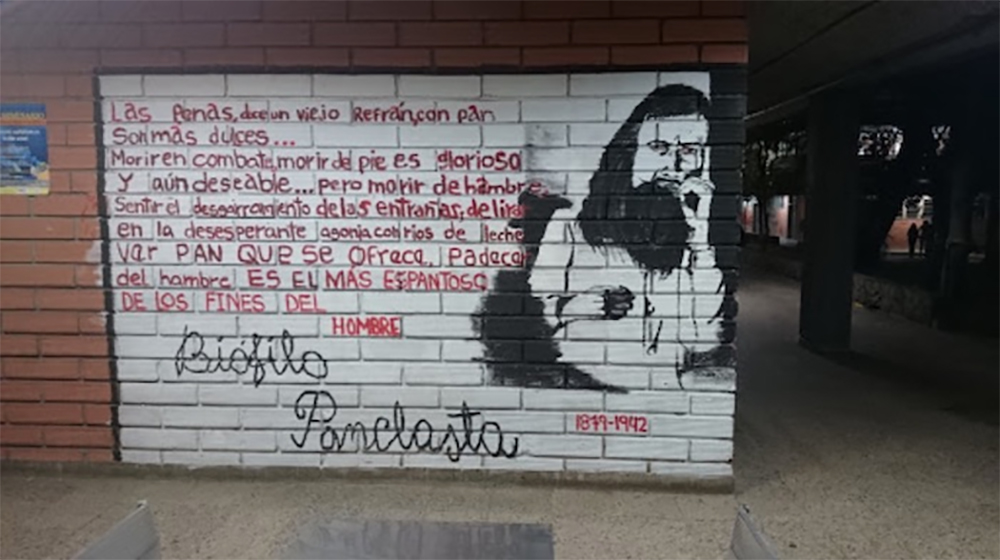 Las Penas, dice un viejo Refrán, con pan
Son más dulces...
Morir en combate, morir de pie es glorioso
Y aún deseable... pero morir de hambre,
Sentir el desgarramiento de las entrañas, delirar
en la desesperante agonia con rios de leche
ver PAN QUE Se Ofrece, Padecer
del hambre ES EL MÁS ESPANTOSO
DE LOS FINES DEL
HOMBRE
Biófilo
Panclasta
1879-1942